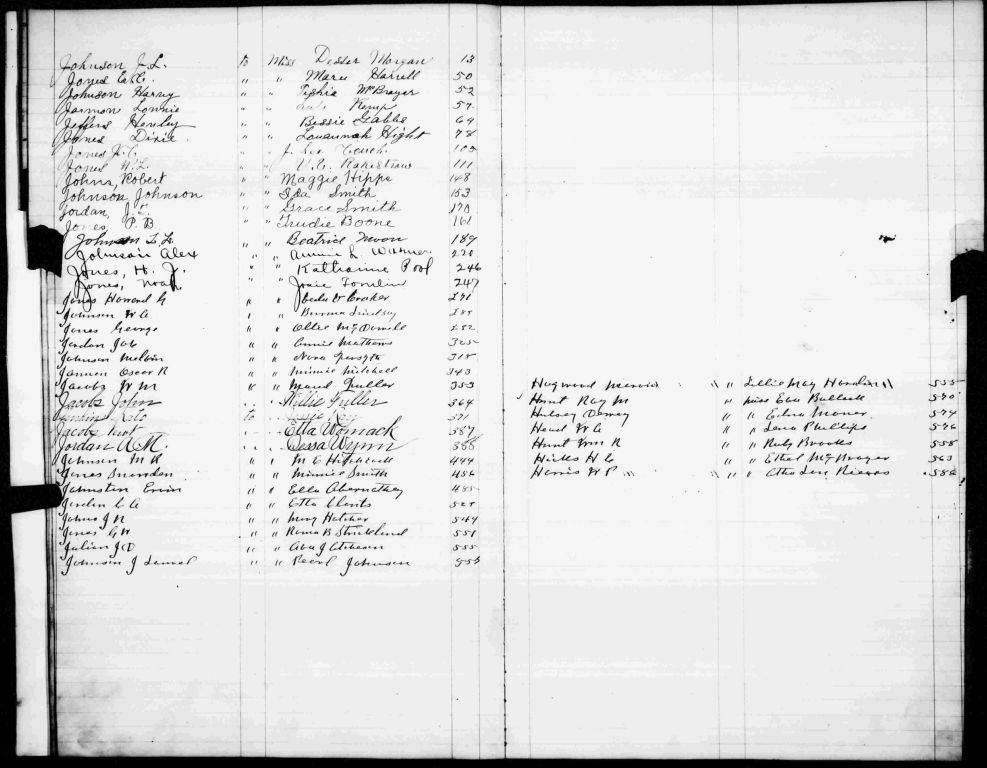 Johnson J. L. to Miss Dester Morgan 13
Jones Earl " " Marie Harrell 50
Johnson Harvy " " Tishie McBrayer 52
Jarmon Lonnie " " Kemp 57
Jeffers Henley " " Bessie Gabbs 69
Jones Dixie " " Louannah Hight 78
Jones J. C. " " J. Couch
Jones W. L. " " V. C. Rakestraw 111
Johns, Robert " " Maggie Hipps 148
Johnson Johnson " " Ida Smith 153
Jordan, J. " " Grace Smith 170
Jones, P. B. " " Trudie Boone 161
Johnson L. L. " " Beatrice Moon 189
Johnson Alex " " Annie L 220
Jones, H. J. " " Katharine Pool 246
Jones, Noah " " Josie Tomlin 247
Jones Howard G " " Croker 271
Johnson W C " " Burma Lindsay
Jones George " " Ollie McDowell 282
Jordan Job " " Annie Mathews 325
Johnson Melvin " " Nora Forsyth 318
Jannon Oscar R " " Minnie Mitchell 343
Jacobs W M " " Maud Fuller 353
Jacobs John " " Willie Fuller 364
to 371
Jacobs " " Etta Womack 387
Jordan A. M. " " Dessa Wynn 388
Johnson M R " " M E Hitchcock 444
Jones Brunden " " Minnie Smith 456
Johnston Ervin " " Ella Abernathey 485
Jordan C A " " Etta Clonts 525
Johns J R " " Mary Hatcher 549
Jones G W " " Roma B Strickland 551
Julian J D " " Ava J Acheson 555
Johnson J Samuel " " Pearl Johnson 556
Haywood Mervin " " Lillie May Hamlin 555
Hunt Ray M " Miss Eva Bullock 570
Hulsey Dewey " " Edna Maner 574
Head W C " " Lena Phillips 576
Hunt Wm R " " Ruby Brooks 558
Hicks H C " " Ethel 563
Harris W P " " Otha Lee 586